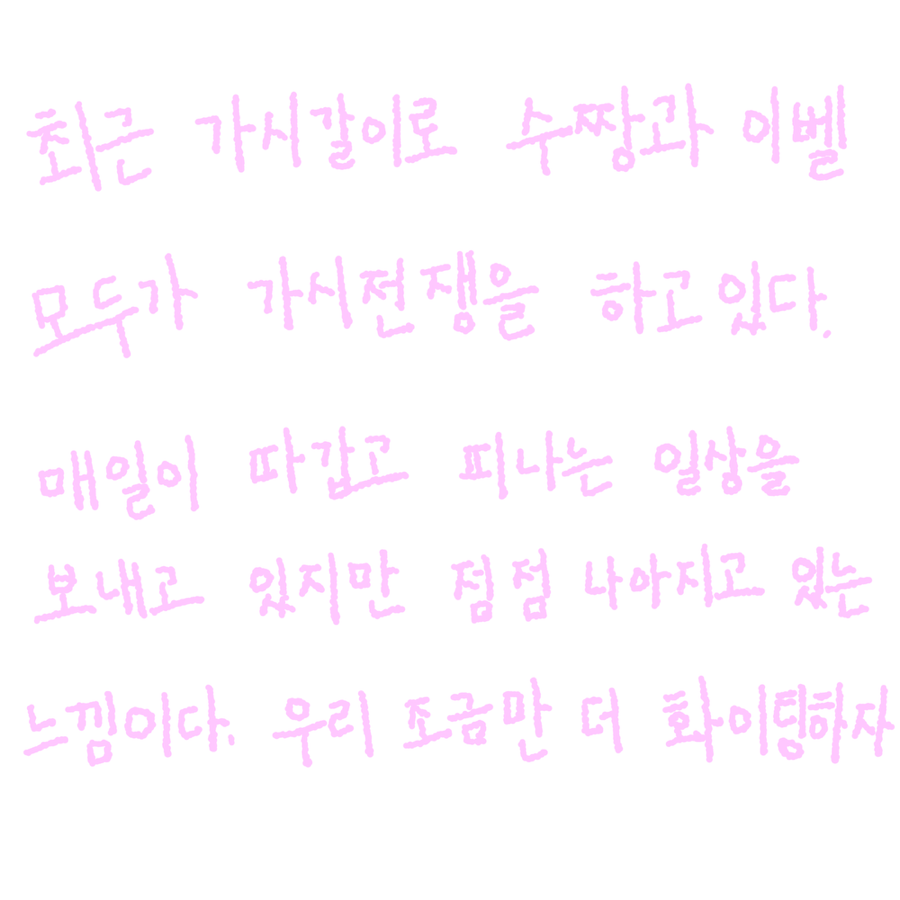 최근 가시갈이로 수짱과 이벨
모두가 가시전쟁을 하고있다.
매일이 따갑고 피나는 일상을
보내고 있지만 점점 나아지고 있는
느낌이다. 우리 조금만 더 화이팅하자